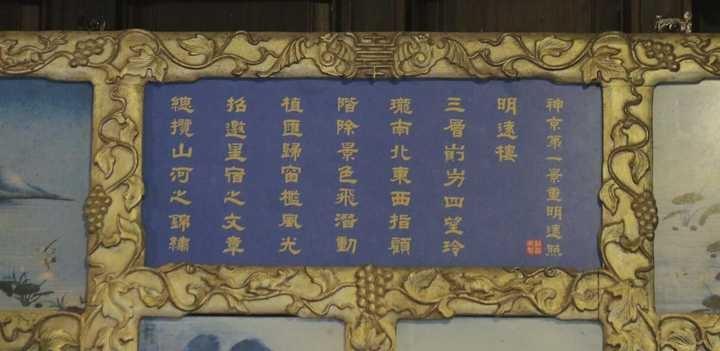 神京第一景重明遠照
明遠樓
三層四望玲
瓏南北東西指顧
階除景色飛潛動
植匯歸窗檻風光
招邀星宿之文章
總攬山河之錦繡